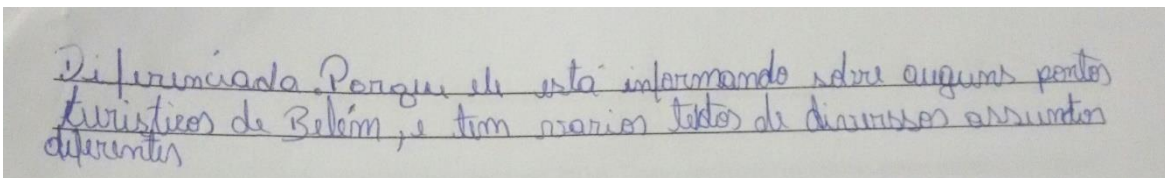 Diferenciada. Porque ele está informando sobre auguns pontos
turisticos de Belém, e tem varios textos de diverssos assuntos
diferentes